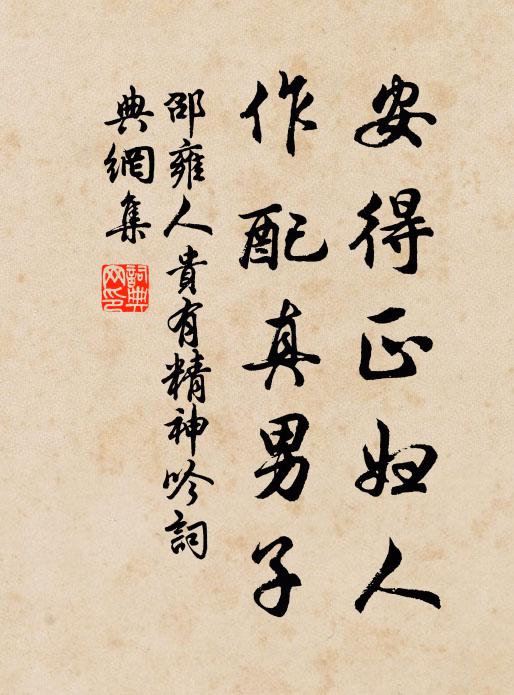 安得正婦人
作配真男子
邵雍人貴有精神吟詞
典網集
詞典網印